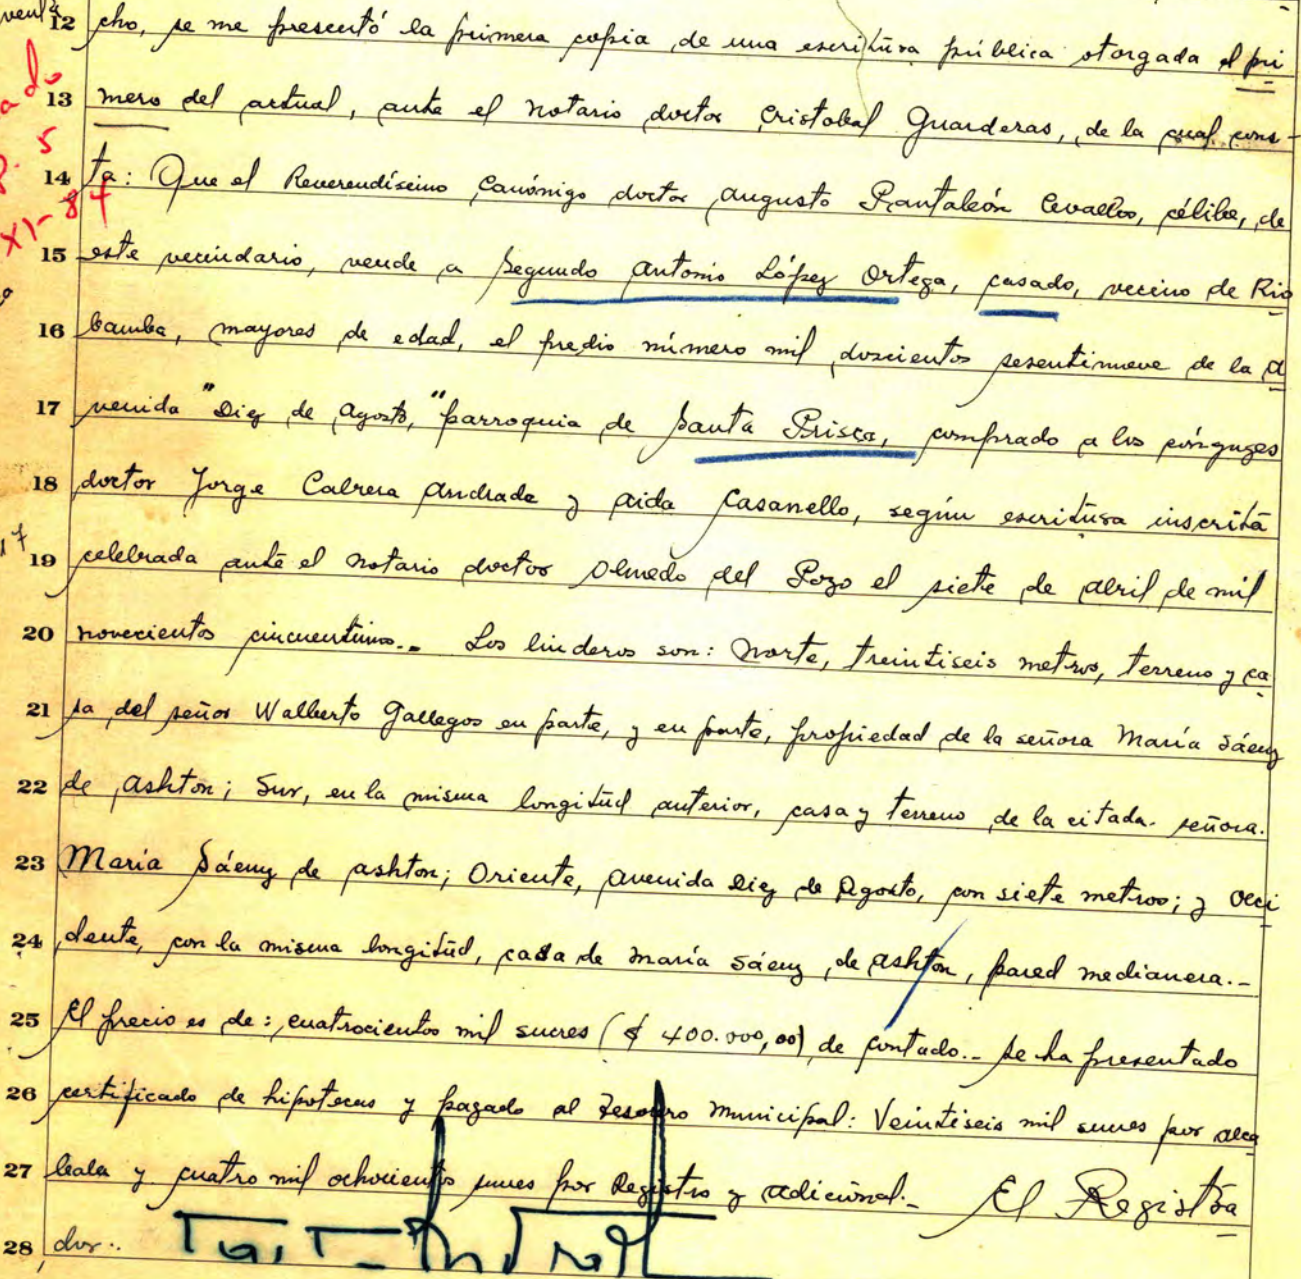 12 cho, se me presentó la primera copia de una escritura pública otorgada el pri
13 mero del actual, ante el notario doctor Cristobal Guarderas, de la cual cons-
14 ta: Que el Reverendísimo Canónigo doctor Augusto Pantaleón Cevallos, célibe, de
15 este vecindario, vende a Segundo Antonio López Ortega, casado, vecino de Rio
16 bamba, mayores de edad, el predio número mil doscientos sesentinueve de la a
17 venida "Diez de Agosto," parroquia de Santa Prisca, comprado a los cónyuges
18 doctor Jorge Cabrera Andrade y Aida Casanello, según escritura inscrita
19 celebrada ante el notario doctor Olmedo del Pozo el siete de abril de mil
20 novecientos cincuentiuno.- Los linderos son: Norte, treintiseis metros, terreno y ca
21 sa del señor Walberto Gallegos en parte, y en parte, propiedad de la señora María Sáenz
22 de Ashton; Sur, en la misma longitud anterior, casa y terreno de la citada señora.
23 María Sáenz de Ashton; Oriente, avenida Diez de Agosto, con siete metros; y Occi
24 dente, con la misma longitud, casa de María Sáenz de Ashton, pared medianera.-
25 El precio es de: cuatrocientos mil sucres ($ 400.000,00) de contado.- Se ha presentado
26 certificado de hipotecas y pagado al Tesoro Municipal: Veintiseis mil sucres por alca
27 bala y cuatro mil ochocientos sucres por Registro y adicional.- El Registra
28 dor.-
P. 5
XI-84
17